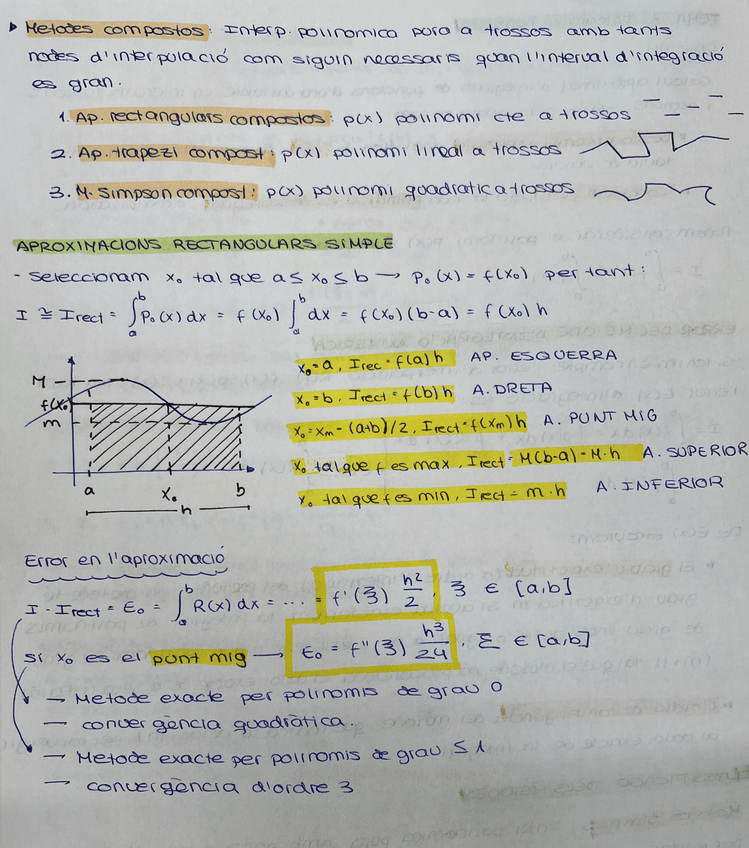 ▸ Metodes compostos: Interp. polinomica para a trossos amb tants
nodes d'interpolació com siguin necessaris quan l'interval d'integració
es gran.
1. Ap. rectangulars compostos: p(x) polinomi cte a trossos
2. Ap. trapezi compost: p(x) polinomi lineal a trossos
3. M. Simpson compost: p(x) polinomi quadratic a trossos
APROXIMACIONS RECTANGULARS SIMPLE
- Seleccionam x₀ tal que a ≤ x₀ ≤ b → P₀(x) = f(x₀) per tant:
I ≅ Irect = ∫ₐᵇ P₀(x) dx = f(x₀) ∫ₐᵇ dx = f(x₀)(b-a) = f(x₀) h
M
f(x₀)
m
a x₀ b
h
x₀=a, Irec = f(a) h AP. ESQUERRA
x₀=b, Irect = f(b) h A. DRETA
x₀=xm = (a+b)/2, Irect = f(xm) h A. PUNT MIG
x₀ tal que f es max, Irect = M(b-a) = M·h A. SUPERIOR
x₀ tal que f es min, Irect = m·h A. INFERIOR
Error en l'aproximació
I - Irect = E₀ = ∫ₐᵇ R(x) dx = ... = f'(ξ) h²/2, ξ ∈ [a,b]
si x₀ es el punt mig → E₀ = f''(ξ) h³/24, ξ ∈ [a,b]
→ Metode exacte per polinomis de grau 0
→ convergència quadràtica.
→ Metode exacte per polinomis de grau ≤ 1
→ convergència d'ordre 3